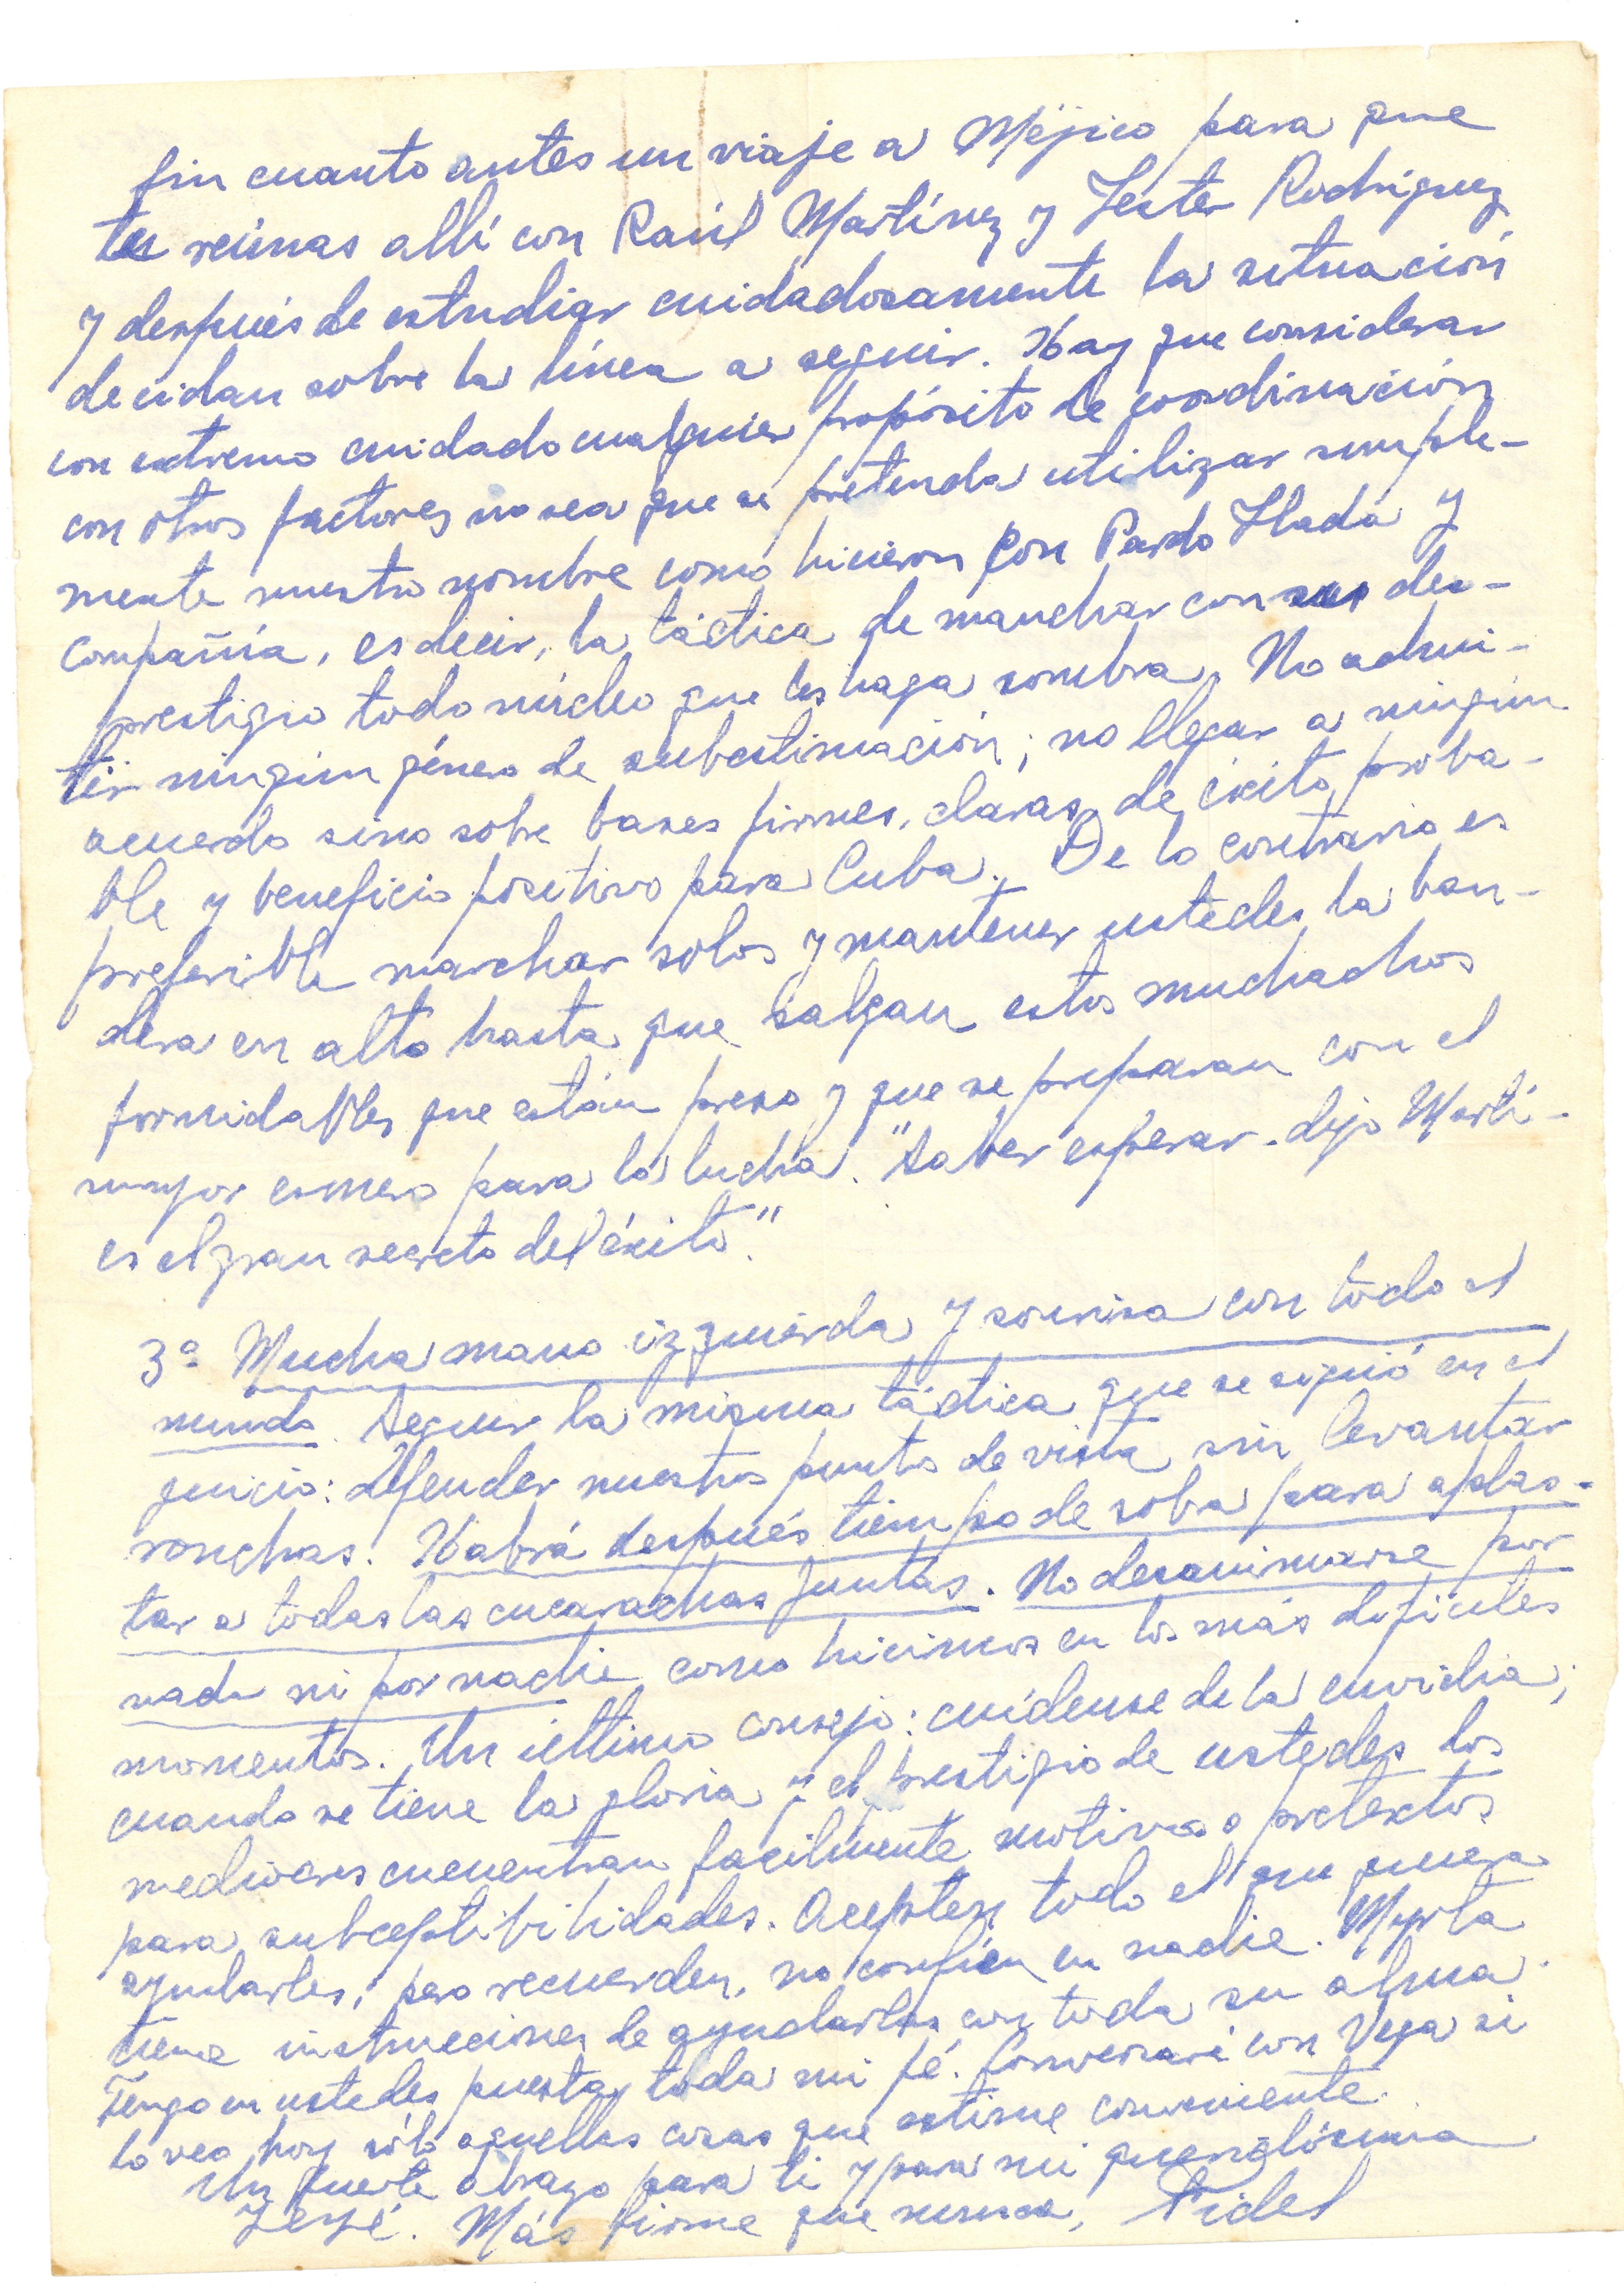 fin cuanto antes un viaje a Méjico para que
te reúnas allí con Raúl Martínez y Lester Rodríguez
y después de estudiar cuidadosamente la situación
decidan sobre la línea a seguir. Hay que considerar
con extremo cuidado cualquier propósito de coordinación
con otros factores no sea que se pretenda utilizar simple-
mente nuestro nombre como hicieron con Pardo Llada y
compañía, es decir, la táctica de manchar con su des-
prestigio todo núcleo que les haga sombra. No admi-
tir ningún género de subestimación; no llegar a ningún
acuerdo sino sobre bases firmes, claras, de éxito proba-
ble y beneficio positivo para Cuba. De lo contrario es
preferible marchar solos y mantener ustedes la ban-
dera en alto hasta que salgan estos muchachos
formidables que están preso y que se preparan con el
mayor esmero para la lucha. "Saber esperar - dijo Martí -
es el gran secreto del éxito."
3º Mucha mano izquierda y sonrisa con todo el
mundo. Seguir la misma táctica que se siguió en el
juicio: defender nuestros puntos de vista sin levantar
ronchas. Habrá después tiempo de sobra para aplas-
tar a todas las cucarachas juntas. No desanimarse por
nada ni por nadie como hicimos en los más difíciles
momentos. Un último consejo: cuídense de la envidia;
cuando se tiene la gloria y el prestigio de ustedes los
mediocres encuentran facilmente motivos o pretextos
para subceptibilidades. Acepten todo el que quiera
ayudarles, pero recuerden, no confíen en nadie. Myrta
tiene instrucciones de ayudarlas con toda su alma.
Tengo en ustedes puesta toda mi fé. Conversaré con Vega si
lo veo hoy sólo aquellas cosas que estime conveniente.
Un fuerte abrazo para ti y para mi queridísima
Yeyé. Más firme que nunca, Fidel